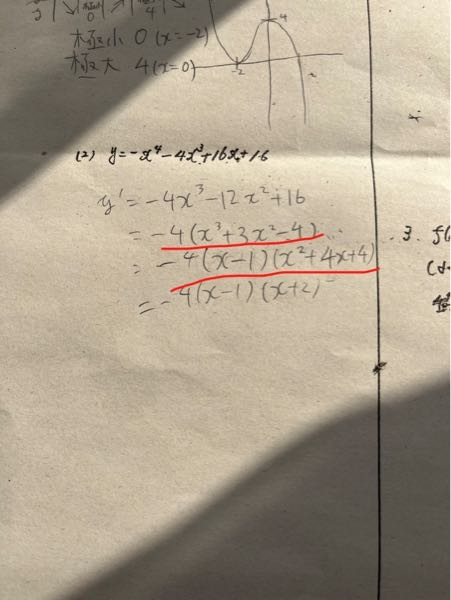 極小 0 (x=-2)
極大 4 (x=0)
4
-2
(2) y=-x⁴-4x³+16x+16
y' = -4x³-12x²+16
= -4(x³+3x²-4)
= -4(x-1)(x²+4x+4)
= -4(x-1)(x+2)²
3.